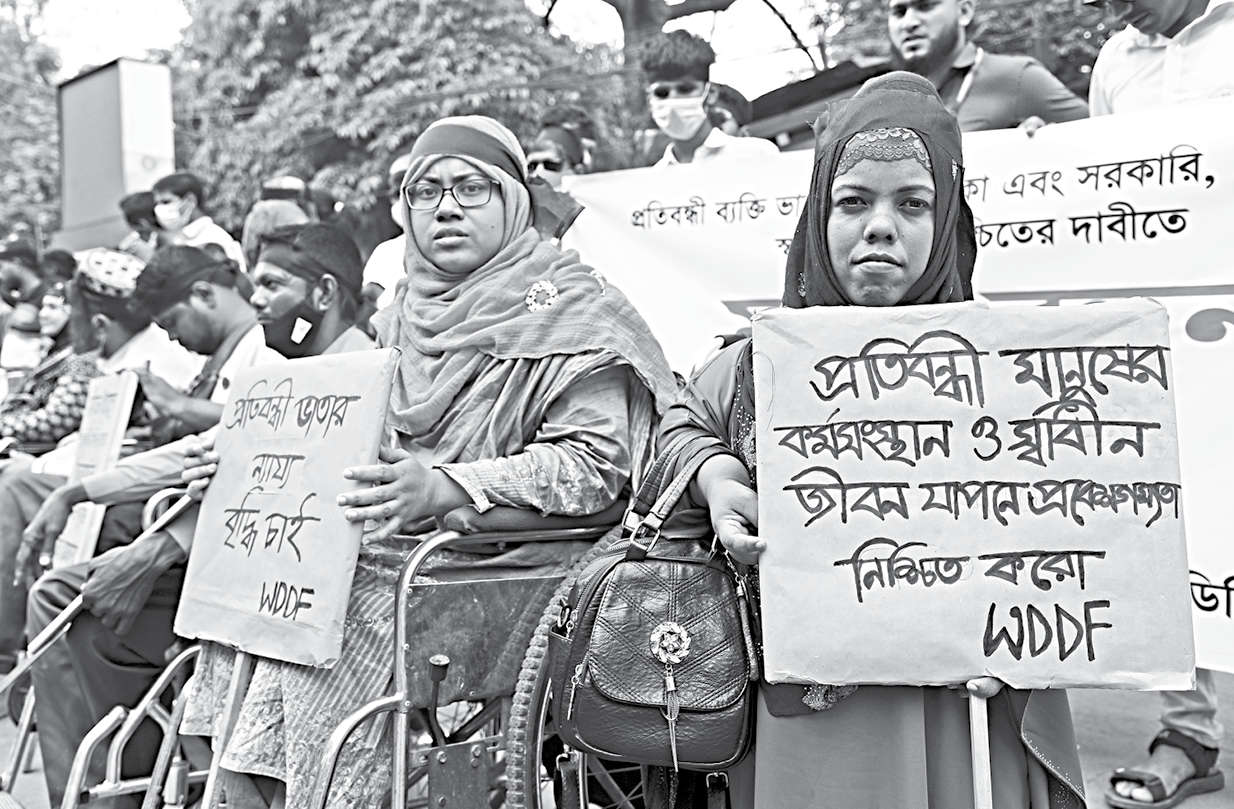 প্রতিবন্ধী ব্যক্তি ভা
কা এবং সরকারি,
শ্চিতের দাবীতে
প্রতিবন্ধী ভাতার
ন্যায্য
বৃদ্ধি চাই
WDDF
প্রতিবন্ধী মানুষের
কর্মসংস্থান ও স্বাধীন
জীবন যাপনে প্রবেশগম্যতা
নিশ্চিত করো
WDDF